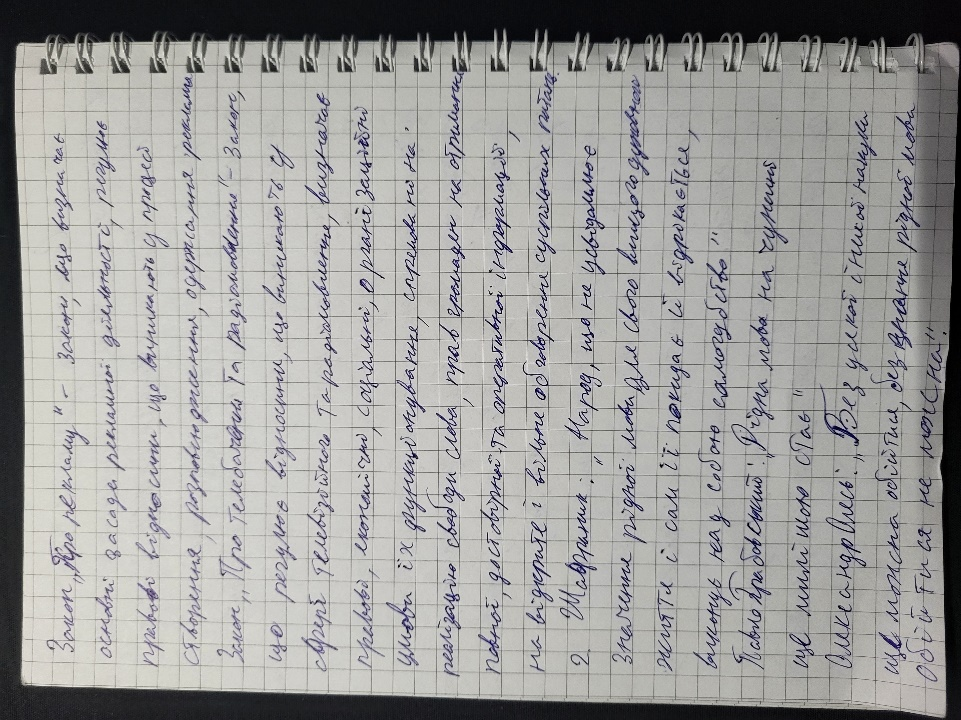 Закон „Про рекламу" – Закон, що визначає
основні засади рекламної діяльності, регулює
правові відносини, що виникають у процесі
створення, розповсюдження, одержання реклами
Закон „Про телебачення та радіомовлення" – Закон,
що регулює відносини, що виникають у
сфері телевізійного та радіомовлення, визначає
правові, економічні, соціальні, організаційні
умови їх функціонування, спрямовані на
реалізацію свободи слова, прав громадян на отримання
повної, достовірної та оперативної інформації,
на відкрите і вільне обговорення суспільних питань.
2 „Народ, що не усвідомлює
значення рідної мови для свого вищого духовного
життя і сам її покидає й відрокається,
виконує над собою самогубство"
Павло Грабовський: „Рідна мова на чужині
ще милішою стає"
Олександр Олесь: „Без усякої іншої науки
ще можна обійтися, без знання рідної мови
обійтися не можна".